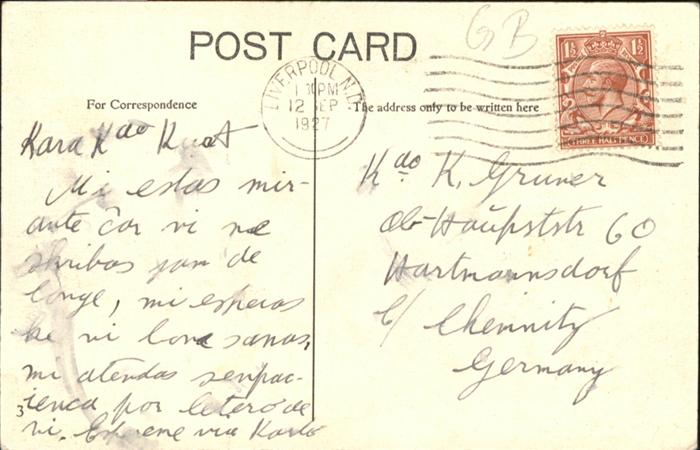 POST CARD
GB
1½ 1½
THREE HALF PENCE
LIVERPOOL. N.D.
1 PM
12 SEP
1927
For Correspondence
The address only to be written here
Kara Kdo
Mi estas mir-
ante ĉar vi ne
skribas jam de
longe, mi esperas
ke vi bone sanas,
mi atendas senpac-
ienca por letero de
vi. Esperene via Karlo
3
Kdo K. Gruner
Ob-Haŭptstr 60
Hartmannsdorf
b/ Chemnitz
Germany